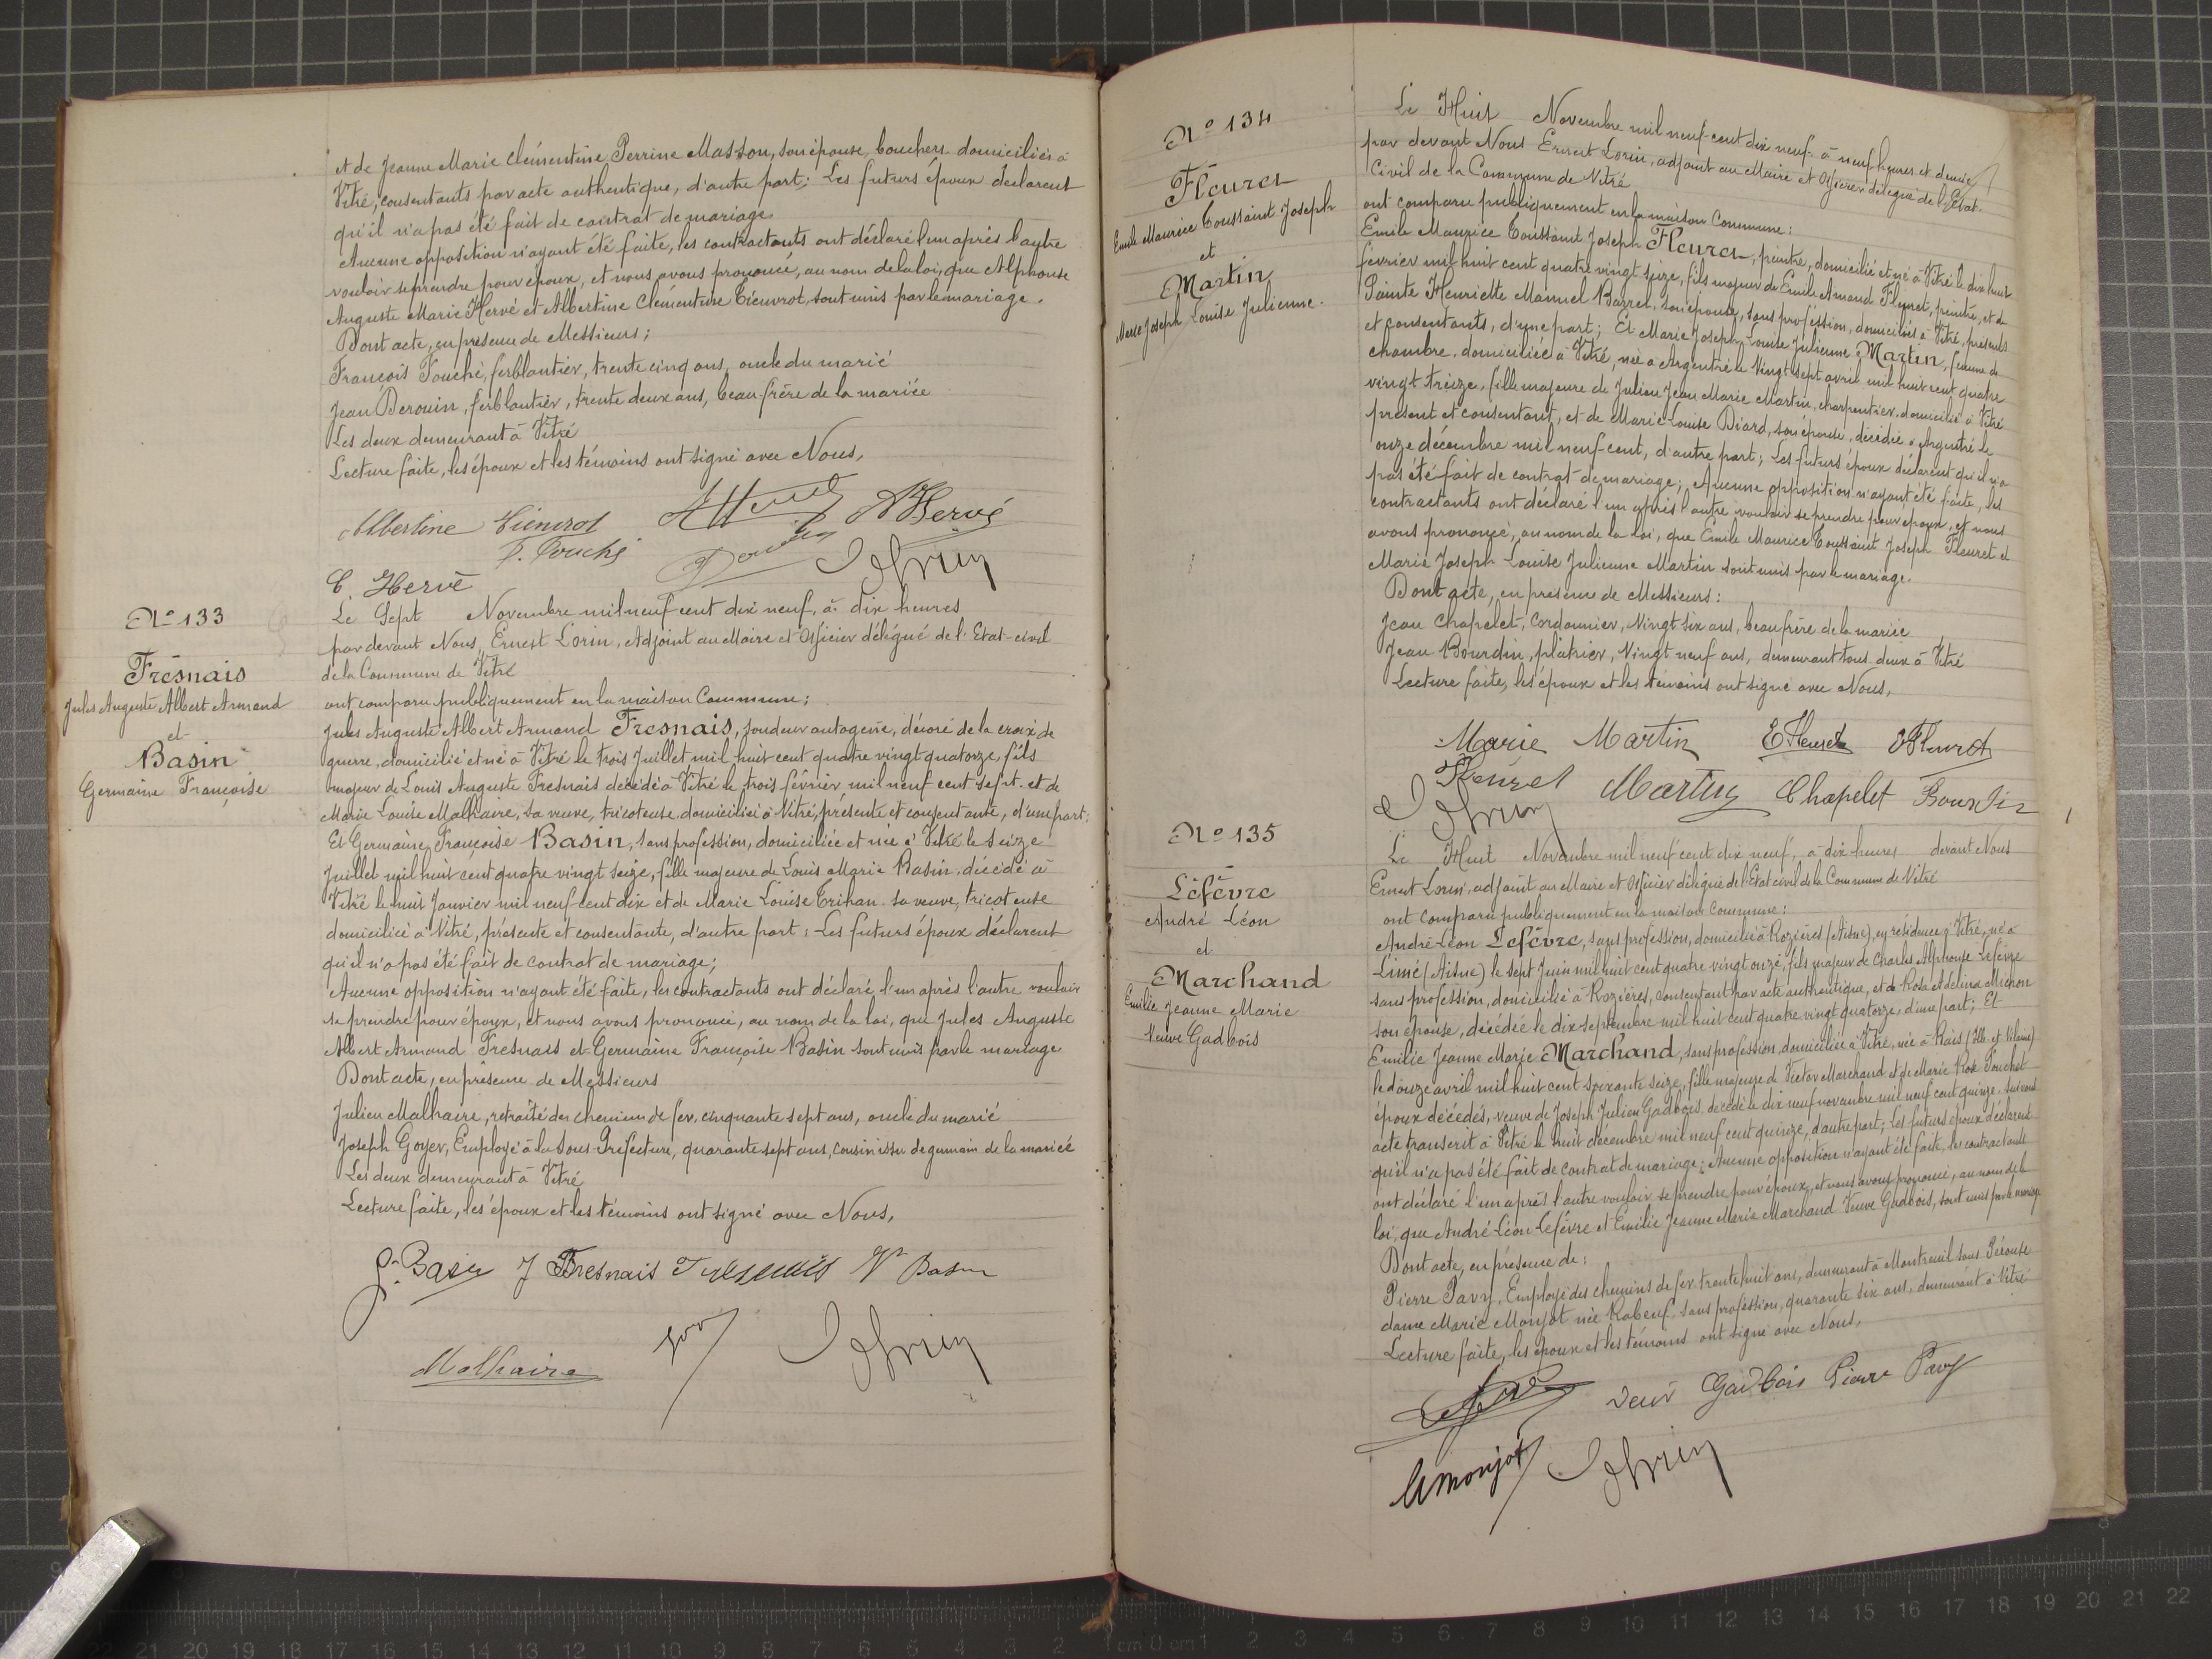 et de Jeanne Marie Clémentine Perrine Masson, son épouse, bouchers domiciliés à
Vitré, consentants par acte authentique, d'autre part; Les futurs époux déclarent
qu'il n'a pas été fait de contrat de mariage
Aucune opposition n'ayant été faite, les contractants ont déclaré l'un après l'autre
vouloir se prendre pour époux, et nous avons prononcé, au nom de la loi, que Alphonse
Auguste Marie Hervé et Albertine Clémentine Tieuvrot, sont unis par le mariage.
Dont acte, en présence de Messieurs;
François Touché, ferblantier, trente cinq ans, oncle du marié
Jean Derouin, ferblantier, trente deux ans, beau-frère de la mariée
Les deux demeurant à Vitré
Lecture faite, les époux et les témoins ont signé avec Nous,
Albertine Tieuvrot AHervé
F. Touché Derouin
C. Hervé
N° 133
Fresnais
Jules Auguste Albert Armand
et
Basin
Germaine Françoise
Le Sept Novembre mil neuf cent dix neuf, à dix heures
par devant Nous, Ernest Lorin, Adjoint au Maire et Officier délégué de l'Etat-civil
de la Commune de Vitré
ont comparu publiquement en la maison Commune;
Jules Auguste Albert Armand Fresnais, soudeur autogène, décoré de la croix de
guerre, domicilié et né à Vitré le trois Juillet mil huit cent quatre vingt quatorze, fils
majeur de Louis Auguste Fresnais décédé à Vitré le trois février mil neuf cent sept et de
Marie Louise Malhaire, sa veuve, tricoteuse domiciliée à Vitré, présente et consentante, d'une part;
Et Germaine Françoise Basin, sans profession, domiciliée et née à Vitré le seize
Juillet mil huit cent quatre vingt seize, fille majeure de Louis Marie Basin, décédé à
Vitré le huit Janvier mil neuf cent dix et de Marie Louise Trihan sa veuve, tricoteuse
domiciliée à Vitré, présente et consentante, d'autre part; Les futurs époux déclarent
qu'il n'a pas été fait de contrat de mariage;
Aucune opposition n'ayant été faite, les contractants ont déclaré l'un après l'autre vouloir
se prendre pour époux, et nous avons prononcé, au nom de la loi, que Jules Auguste
Albert Armand Fresnais et Germaine Françoise Basin sont unis par le mariage
Dont acte, en présence de Messieurs
Julien Malhaire, retraité des chemins de fer, cinquante sept ans, oncle du marié
Joseph Goyer, Employé à la Sous-Préfecture, quarante sept ans, cousin issu de germain de la mariée
Les deux demeurant à Vitré
Lecture faite, les époux et les témoins ont signé avec Nous,
G. Basin J Fresnais Fresnais Vve Basin
Malhaire
N° 134
Fleuret
Emile Maurice Toussaint Joseph
et
Martin
Marie Joseph Louise Julienne
Le Huit Novembre mil neuf-cent dix neuf à neuf heures et demie
par devant Nous Ernest Lorin, adjoint au Maire et Officier délégué de l'Etat-
Civil de la Commune de Vitré
ont comparu publiquement en la maison Commune:
Emile Maurice Toussaint Joseph Fleuret, peintre, domicilié et né à Vitré le dix huit
février mil huit cent quatre vingt seize, fils majeur de Emile Amand Fleuret, peintre, et de
Sainte Henriette Manuel Bazret, son épouse, sans profession, domiciliés à Vitré, présents
et consentants, d'une part; Et Marie Joseph Louise Julienne Martin, femme de
chambre, domiciliée à Vitré, née à Argentré le Vingt sept avril mil huit cent quatre
vingt treize, fille majeure de Julien Jean Marie Martin, charpentier, domicilié à Vitré
présent et consentant, et de Marie Louise Diard, son épouse, décédée à Argentré le
onze décembre mil neuf-cent, d'autre part; Les futurs époux déclarent qu'il n'a
pas été fait de contrat de mariage; Aucune opposition n'ayant été faite, les
contractants ont déclaré l'un après l'autre vouloir se prendre pour époux, et nous
avons prononcé, au nom de la loi, que Emile Maurice Toussaint Joseph Fleuret et
Marie Joseph Louise Julienne Martin sont unis par le mariage.
Dont acte, en présence de Messieurs:
Jean Chapelet, Cordonnier, Vingt six ans, beau frère de la mariée
Jean Bourdin, plâtrier, Vingt neuf ans, demeurant tous deux à Vitré
Lecture faite, les époux et les témoins ont signé avec Nous,
Marie Martin E Fleuret Fleuret
Martin Chapelet Bourdin
N° 135
Lefèvre
André Léon
et
Marchand
Emilie Jeanne Marie
Veuve Gadbois
Le Huit Novembre mil neuf cent dix neuf, à dix heures devant Nous
Ernest Lorin, adjoint au Maire et Officier délégué de l'Etat civil de la Commune de Vitré
ont comparu publiquement en la maison Commune:
André Léon Lefèvre, sans profession, domicilié à Rozières (Aisne), en résidence à Vitré, né à
Limé (Aisne) le sept Juin mil huit cent quatre vingt onze, fils majeur de Charles Alphonse Lefèvre
sans profession, domicilié à Rozières, consentant par acte authentique, et de Rosa Adelina Michon
son épouse, décédée le dix septembre mil huit cent quatre vingt quatorze, d'une part; Et
Emilie Jeanne Marie Marchand, sans profession, domiciliée à Vitré, née à Rais (Ille-et-Vilaine)
le douze avril mil huit cent soixante seize, fille majeure de Victor Marchand et de Marie Rose Touchet
époux décédés, veuve de Joseph Julien Gadbois décédé le dix neuf novembre mil neuf cent quinze, suivant
acte transcrit à Vitré le huit décembre mil neuf cent quinze, d'autre part; Les futurs époux déclarent
qu'il n'a pas été fait de contrat de mariage; Aucune opposition n'ayant été faite, les contractants
ont déclaré l'un après l'autre vouloir se prendre pour époux, et nous avons prononcé, au nom de la
loi, que André Léon Lefèvre et Emilie Jeanne Marie Marchand Veuve Gadbois, sont unis par le mariage
Dont acte, en présence de:
Pierre Pavy, Employé des chemins de fer trente huit ans, demeurant à Montreuil sous Pérouse
dame Marie Monjot née Rabeuf, sans profession, quarante six ans, demeurant à Vitré
Lecture faite, les époux et les témoins ont signé avec Nous,
veuve Gadbois Pierre Pavy
Monjot